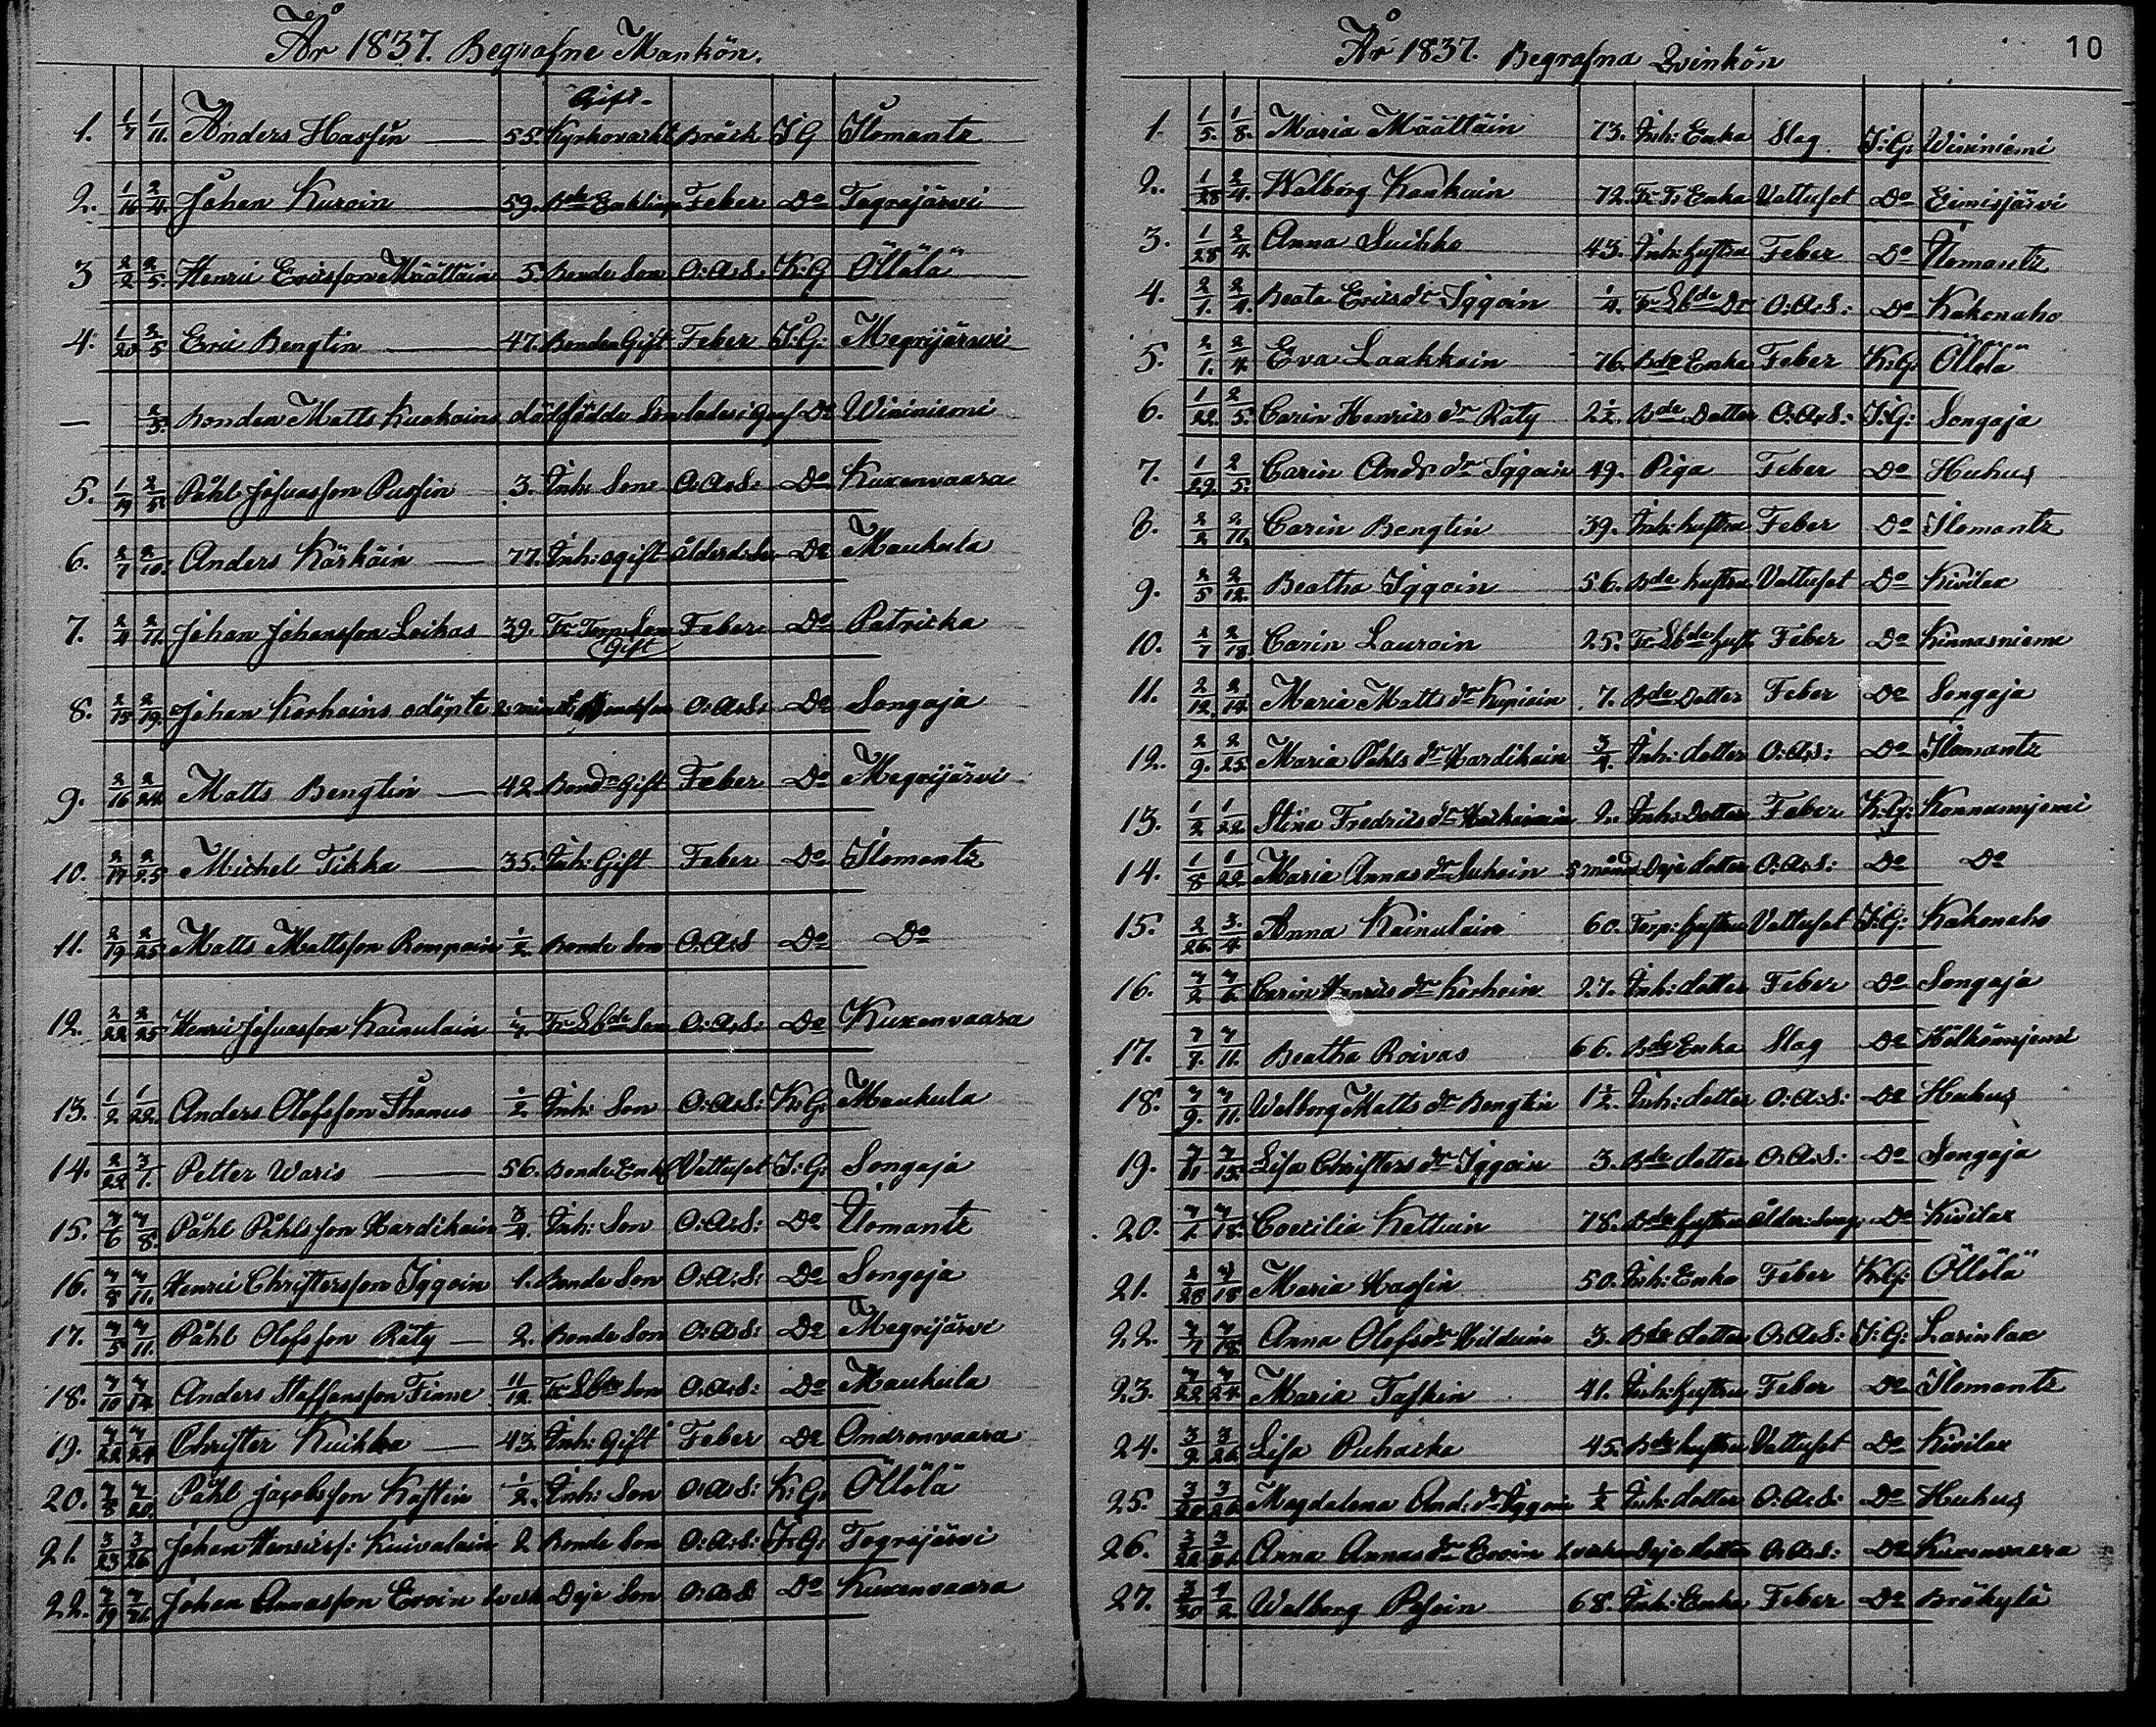 År 1837. Begrafne Mankön.
1. 1/7 1/11. Anders Hassin 55. Gift Kyrkovackt Bråck I:G Ilomantz
2. 1/16 2/4. Johan Kuroin 59. Bde Enkling Feber Do Tograjärvi
3 2/2 2/5. Henric Ericsson Määttäin 5. Bonde Son O:A:S: K:G Öllölä
4. 1/20 2/5 Eric Bengtin 47. Bonden Gift Feber I:G: Megrijärvi
— 2/5. Bonden Matts Kuokains dödfödde Son lades i graf Do Wiininiemi
5. 1/19 2/5 Påhl Josuasson Pussin 3. Inh: Son O:A:S: Do Kuxenvaara
6. 2/7 2/10. Anders Kärkäin 77. Inh: ogift Do Maukula
7. 2/4 2/11. Johan Johansson Leikas 39. Fr Torp. Son Gift Feber Do Patricka
8. 2/15 2/19. Johan Korhoins odöpte Bondeson O:A:S: Do Songaja
9. 2/16 2/24. Matts Bengtin 42. Bonde Gift Feber Do Megrijärvi
10. 2/17 2/25 Michel Tikka 35. Inh: Gift Feber Do Ilomantz
11. 2/19 2/25 Matts Mattsson Rompain 1/2. Bonde Son O:A:S Do Do
12. 2/22 2/25 Henric Josuasson Kainulain 1/4. Fr Sbde Son O:A:S: Do Kuxenvaara
13. 1/2 1/22. Anders Olofsson Ihanus 1/2. Inh: Son O:A:S: K:G: Maukula
14. 2/22 3/1. Petter Waris 56. Bonde Enkl Vattusot I:G: Songaja
15. Påhl Påhlsson Hardikain 3/4. Inh: Son O:A:S: Do Ilomantz
16. Henric Christersson Iggoin 1. Bonde Son O:A:S: Do Songaja
17. Påhl Olofsson Räty 2. Bonde Son O:A:S: Do Megrijärvi
18. Anders Staffansson Finne 11/12. Fr Sbde Son O:A:S: Do Maukula
19. Christer Kuikka 43. Inh: Gift Feber Do Ondronvaara
20. Påhl Jacobsson Kostin 1/2. Inh: Son O:A:S: K:G: Öllölä
21. 3/23 3/26 Johan Henricss: Kuivalain 2 Bonde Son O:A:S: I:G: Togrijärvi
22. Johan Annasson Eroin Deje Son O:A:S Do Kuxenvaara
År 1837. Begrafna Qvinkön
10
1. 1/5. 1/8. Maria Määttäin 73. Inh: Enka Slag I:G: Wiininiemi
2. 1/28 2/4. Walborg Kaukain 72. Fr Enka Vattusot Do Eimisjärvi
3. 1/28 2/4. Anna Suikka 43. Inh: hustru Feber Do Ilomantz
4. 2/1. 2/4. Beata Ericsdr Iggoin 1/4. Fr Sbde Dr O:A:S: Do Kakonaho
5. 2/1. 2/4. Eva Laakkoin 76. Bde Enka Feber K:G: Öllölä
6. 1/22. 2/5. Carin Henrics dr Räty 2 1/2. Bde Dotter O:A:S: I:G: Songaja
7. 1/29. 2/5. Carin Ands dr Iggoin 49. Piga Feber Do Huhus
8. 2/2 2/11. Carin Bengtin 39. Inh: hustru Feber Do Ilomantz
9. 2/5 2/12. Beatha Iggoin 56. Bde hustru Vattusot Do Kivilax
10. 2/7 2/18. Carin Lauroin 25. Fr Sbde hust. Feber Do Kinnasniemi
11. 2/12. 2/14. Maria Matts dr Kupiain 7. Bde Dotter Feber Do Songaja
12. 2/9. 2/25. Maria Påhls dr Hardikain 3/4 Inh: dotter O:A:S: Do Ilomantz
13. 1/2 1/22. Stina Fredrics dr 2. Inh: Dotter Feber K:G: Konnanniemi
14. 1/8 1/22. Maria Annas dr Suhoin 5 månd Deje dotter O:A:S: Do Do
15. 2/26. 3/4. Anna Kainulain 60. Torp: hustru Vattusot I:G: Kakonaho
16. Carin Henrics dr Korhoin 27. Inh: dotter Feber Do Songaja
17. Beatha Roivas 66. Bde Enka Slag Do
18. Walborg Matts dr Bengtin 1 1/2. Inh: dotter O:A:S: Do Huhus
19. Lisa Christers dr Iggoin 3. Bde dotter O:A:S: Do Songaja
20. Coecilia Kettuin 78. Bde hustru Do Kivilax
21. Maria Hassin 50. Inh: Enka Feber K:G: Öllölä
22. Anna Olofsdr Hilduin 3. Bde dotter O:A:S: I:G: Larinlax
23. Maria Taskin 41. Inh: hustru Feber Do Ilomantz
24. 3/9. 3/26. Lisa Puhacka 45. Bde hustru Vattusot Do Kivilax
25. 3/20 3/26. Magdalena And: dr Iggoin 1/2 Inh: dotter O:A:S: Do Huhus
26. Anna Annas dr Eroin Deje dotter O:A:S: Do Kuxenvaara
27. 3/30 4/2. Walborg 68. Inh: Enka Feber Do Bråkylä